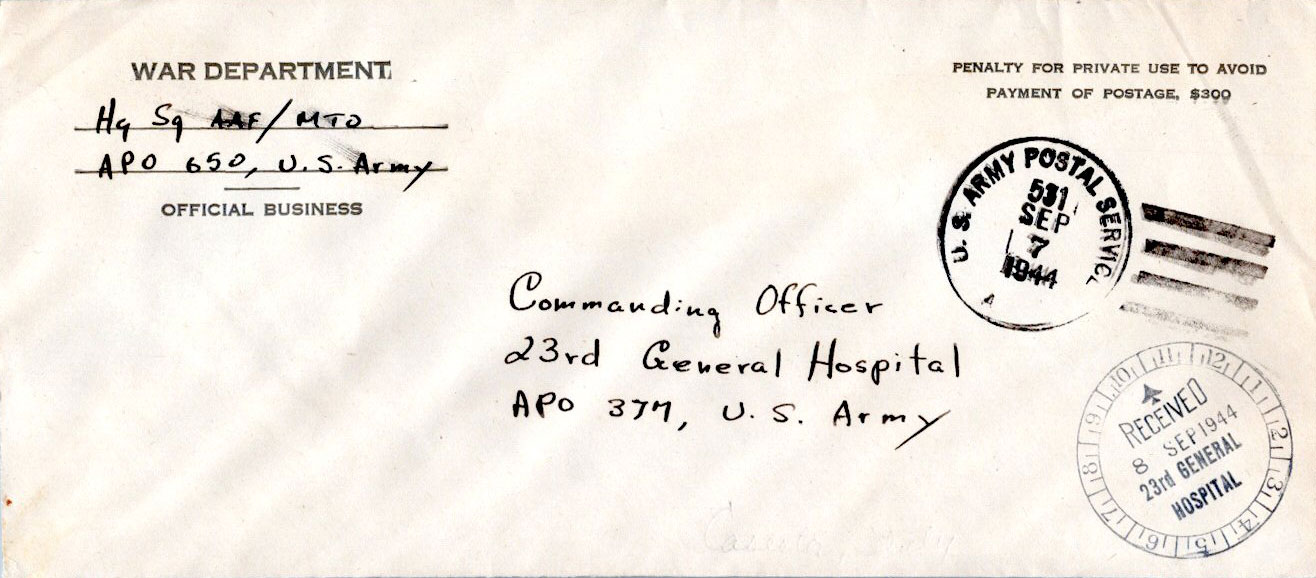 WAR DEPARTMENT
Hq Sq AAF/MTO
APO 650, U.S. Army
OFFICIAL BUSINESS
PENALTY FOR PRIVATE USE TO AVOID
PAYMENT OF POSTAGE, $300
U.S. ARMY POSTAL SERVICE
531
SEP
7
1944
A
Commanding Officer
23rd General Hospital
APO 377, U.S. Army
10 11 12 1 2 3 4 5 6 7 8 9
RECEIVED
8 SEP 1944
23rd GENERAL
HOSPITAL